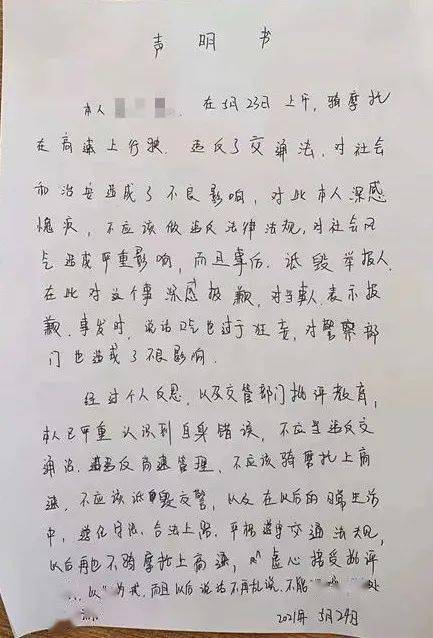 声明书
本人 在5月23日上午，骑摩托
在高速上行驶．违反了交通法，对社会
和治安造成了不良影响，对此本人深感
愧疚，不应该做违反法律法规，对社会风
气造成严重影响，而且事后．诋毁举报人．
在此对这个事深感抱歉，对当事人表示报
歉．事发时，说话口气也过于狂妄，对警察部
门也造成了不良影响．
经过个人反思，以及交管部门批评教育，
本人已严重认识到自身错误，不应当违反交
通法．违反高速管理，不应该骑摩托上高
速．不应该诋毁交警，以及在以后的日常生活
中，遵纪守法．合法上路．严格遵守交通法规，
以后再也不骑摩托上高速，虚心接受批评
为戒，而且以后说话不再乱说．不能 处
2021年 5月24日